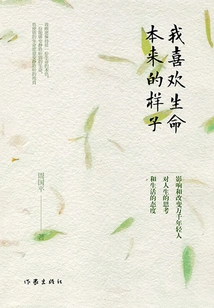 我喜欢生命
本来的样子
周国平
影响和改变万千年轻人
对人生的思考
和生活的态度
作家出版社